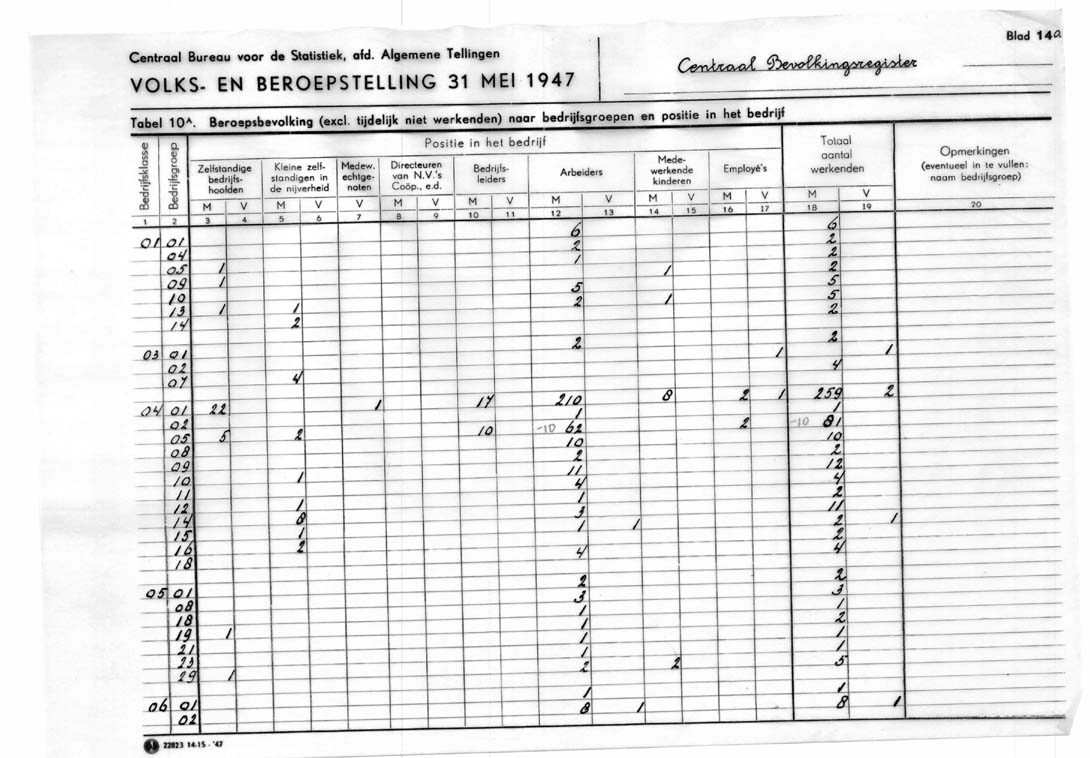 Blad 14a
Centraal Bureau voor de Statistiek, afd. Algemene Tellingen
Centraal Bevolkingsregister
VOLKS- EN BEROEPSTELLING 31 MEI 1947
Tabel 10A. Beroepsbevolking (excl. tijdelijk niet werkenden) naar bedrijfsgroepen en positie in het bedrijf
Bedrijfsklasse
Bedrijfsgroep
Positie in het bedrijf
Zelfstandige
bedrijfs-
hoofden
Kleine zelf-
standigen in
de nijverheid
Medew.
echtge-
noten
Directeuren
van N.V.'s
Coöp., e.d.
Bedrijfs-
leiders
Arbeiders
Mede-
werkende
kinderen
Employé's
Totaal
aantal
werkenden
Opmerkingen
(eventueel in te vullen:
naam bedrijfsgroep)
M V M V V M V M V M V M V M V M V
1 2 3 4 5 6 7 8 9 10 11 12 13 14 15 16 17 18 19 20
01 01 6 6
04 2 2
05 1 1 2
09 1 1 2
10 5 5
13 1 1 2 1 5
14 2 2
03 01 2 2
02 1 1
07 4 4
04 01 22 1 17 210 8 2 1 259 2
02 1 1
05 5 2 10 -10 62 2 -10 81
08 10 10
09 2 2
10 1 11 12
11 4 4
12 1 1 2
14 8 3 11
15 1 1 1 2 1
16 2 2
18 4 4
05 01 2 2
08 3 3
18 1 1
19 1 1 2
21 1 1
23 1 1
29 1 2 2 5
06 01 1 1
02 8 1 8 1
22823 14-15 - '47